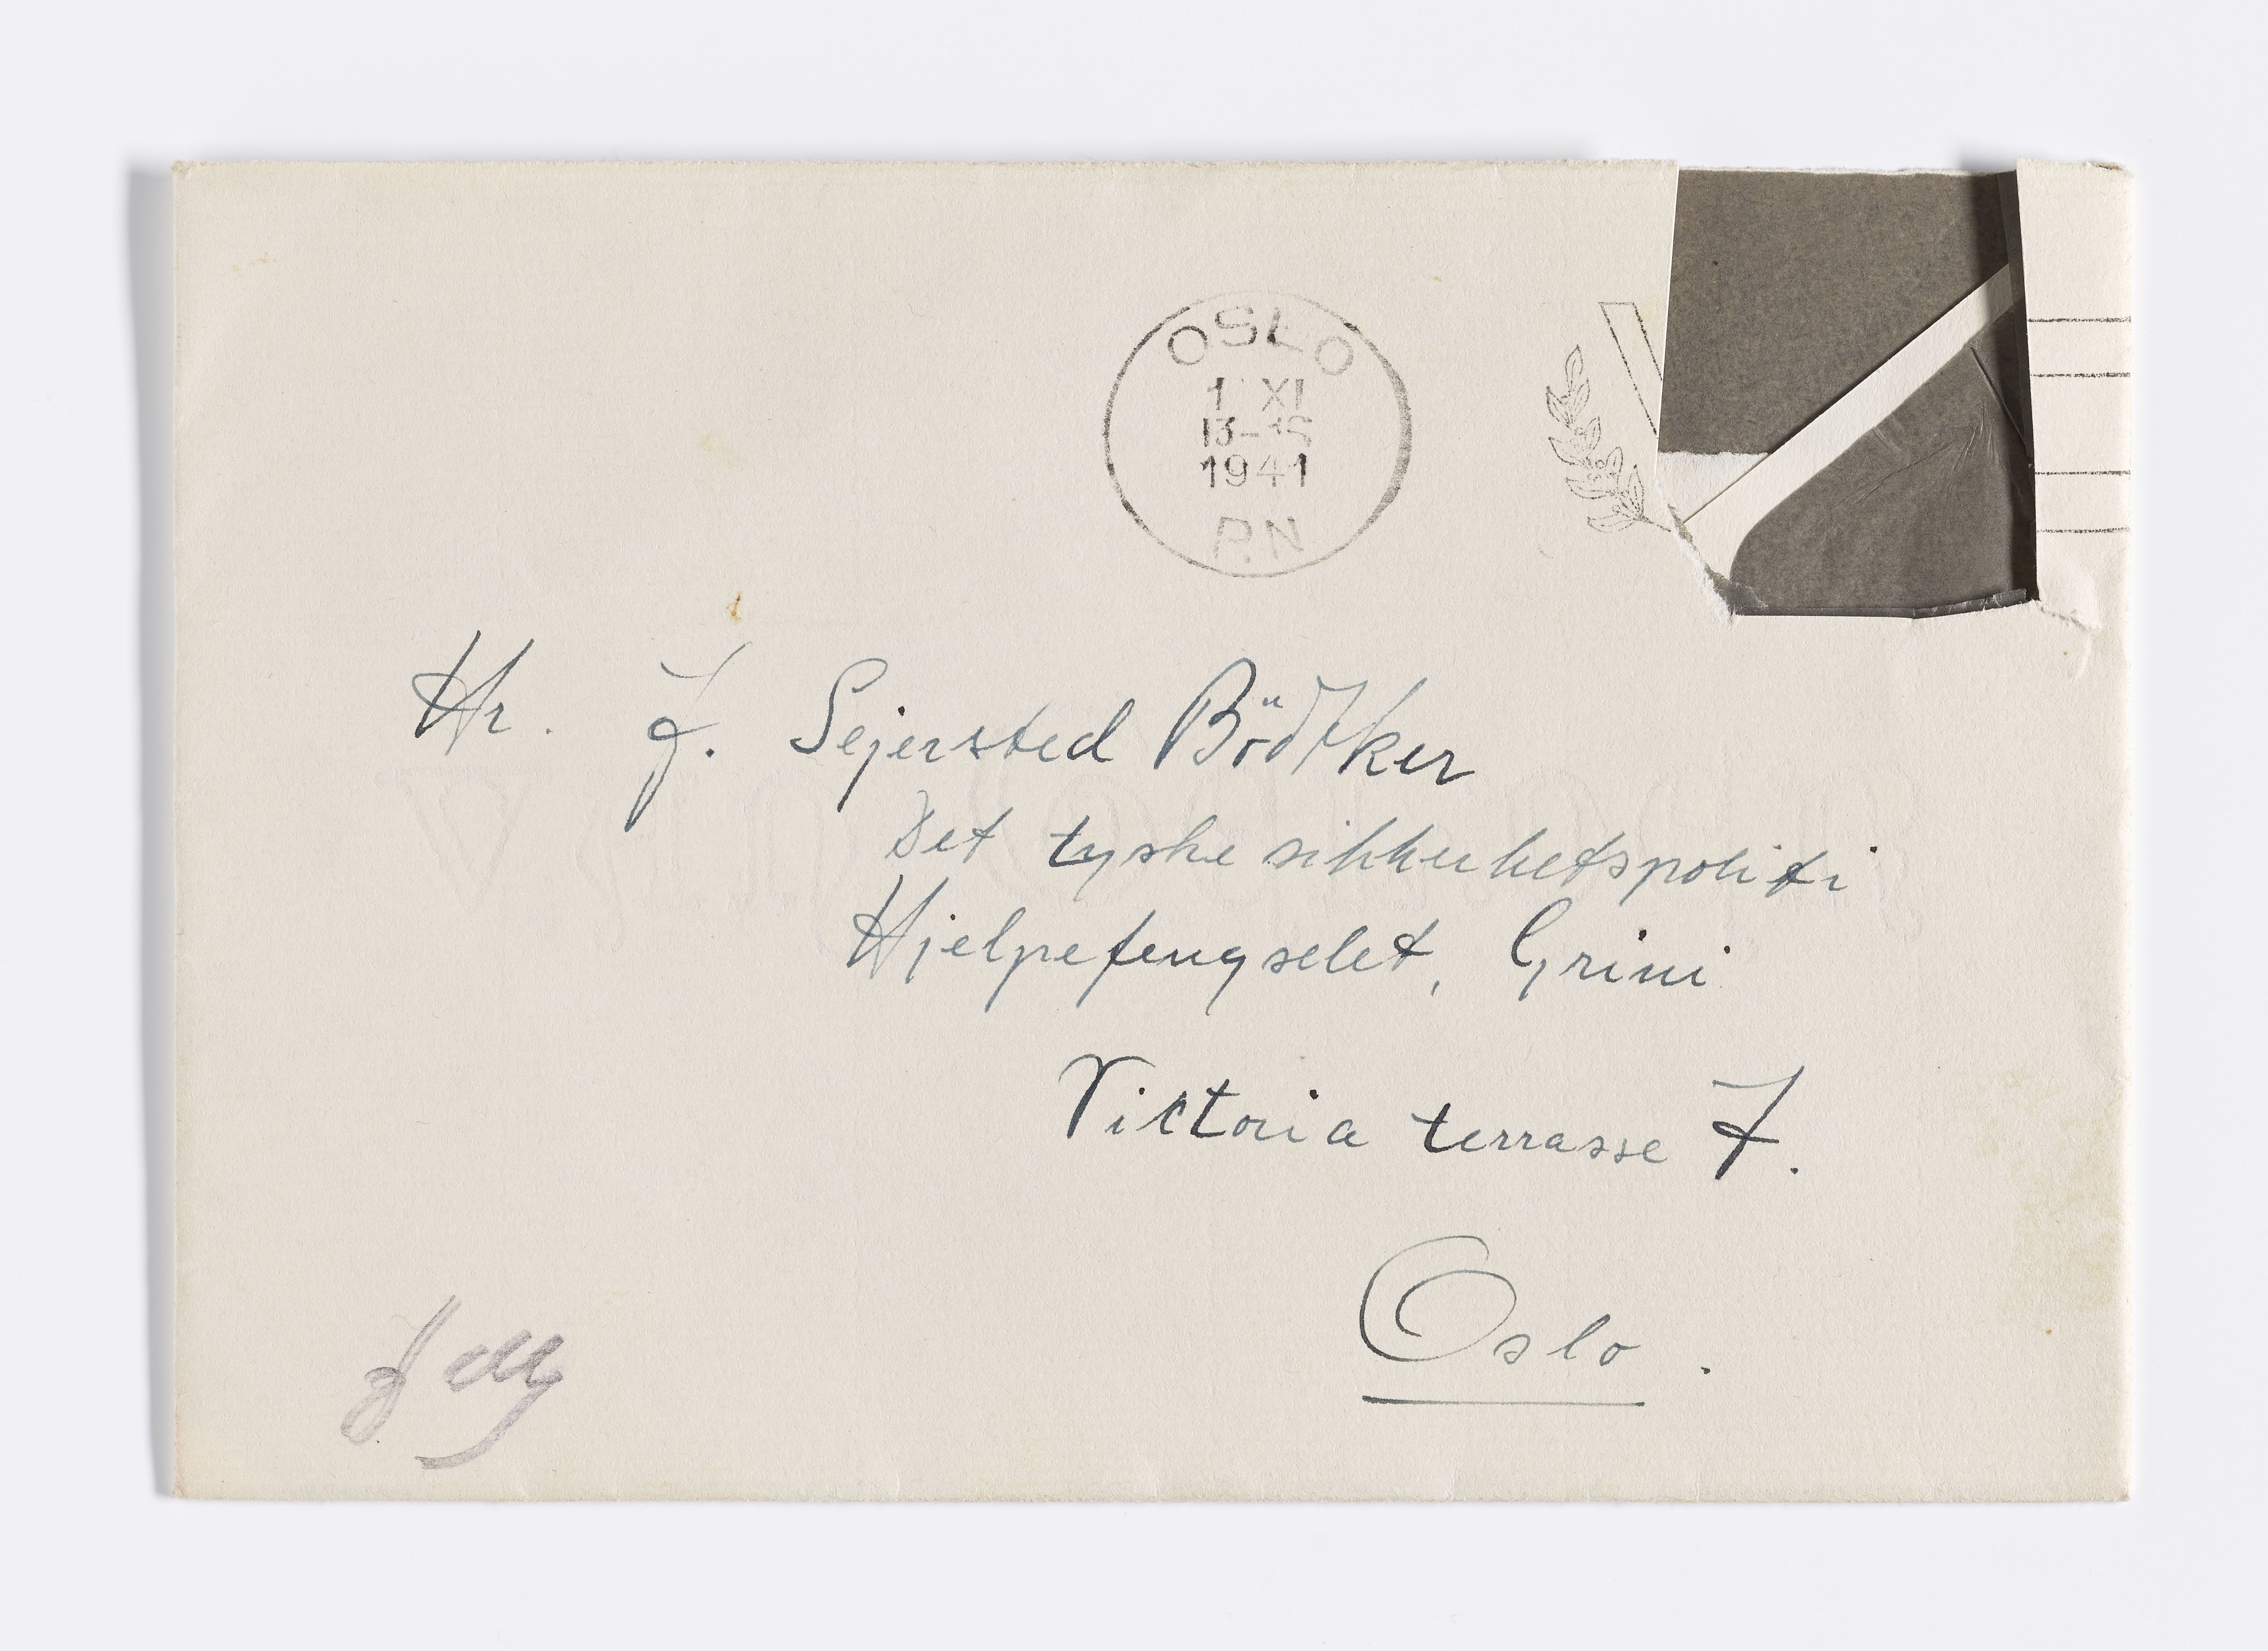 OSLO
1 XI
13-16
1941
P.N
Hr. J. Sejersted Bödtker
Det tyske sikkerhetspoliti
Hjelpefengselet, Grini
Victoria terrasse 7.
Oslo.